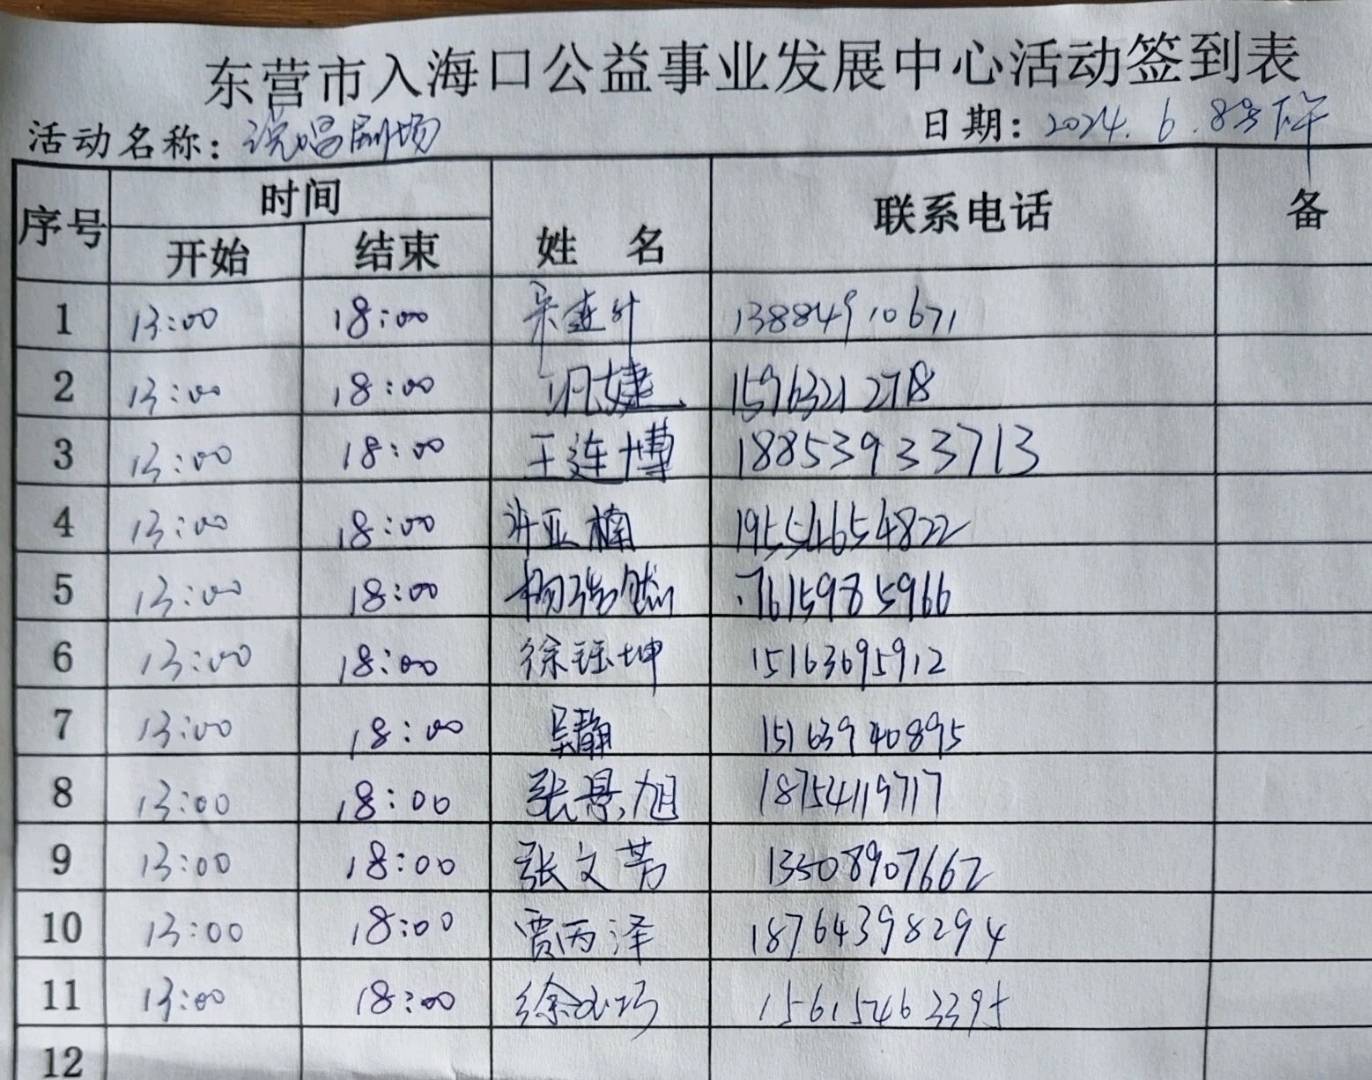 东营市入海口公益事业发展中心活动签到表
活动名称：说唱剧场 日期：2024.6.8号下午
序号 时间 姓 名 联系电话 备
开始 结束
1 13:00 18:00 宋连叶 13884910671
2 13:00 18:00 婕 15963212718
3 13:00 18:00 王连博 18853933713
4 13:00 18:00 许亚楠 19554654822
5 13:00 18:00 杨浩然 17615985966
6 13:00 18:00 徐钰坤 15163695912
7 13:00 18:00 吴静 15163940895
8 13:00 18:00 张景旭 18754119717
9 13:00 18:00 张文芳 13508907662
10 13:00 18:00 贾丙泽 18764398294
11 13:00 18:00 徐巧 15615463395
12